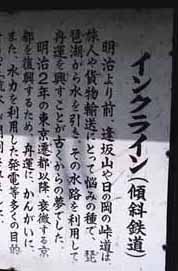 インクライン(傾斜鉄道)
明治より前、逢坂山や日の岡の峠道は
旅人や貨物輸送にとって悩みの種で、琵
琶湖から水を引き、その水路を利用して
舟運を興すことが古くからの夢でした。
明治2年の東京遷都以降、衰微する京
都を復興するため、舟運に、かんがいに、
また、水力を利用した発電等多くの目的